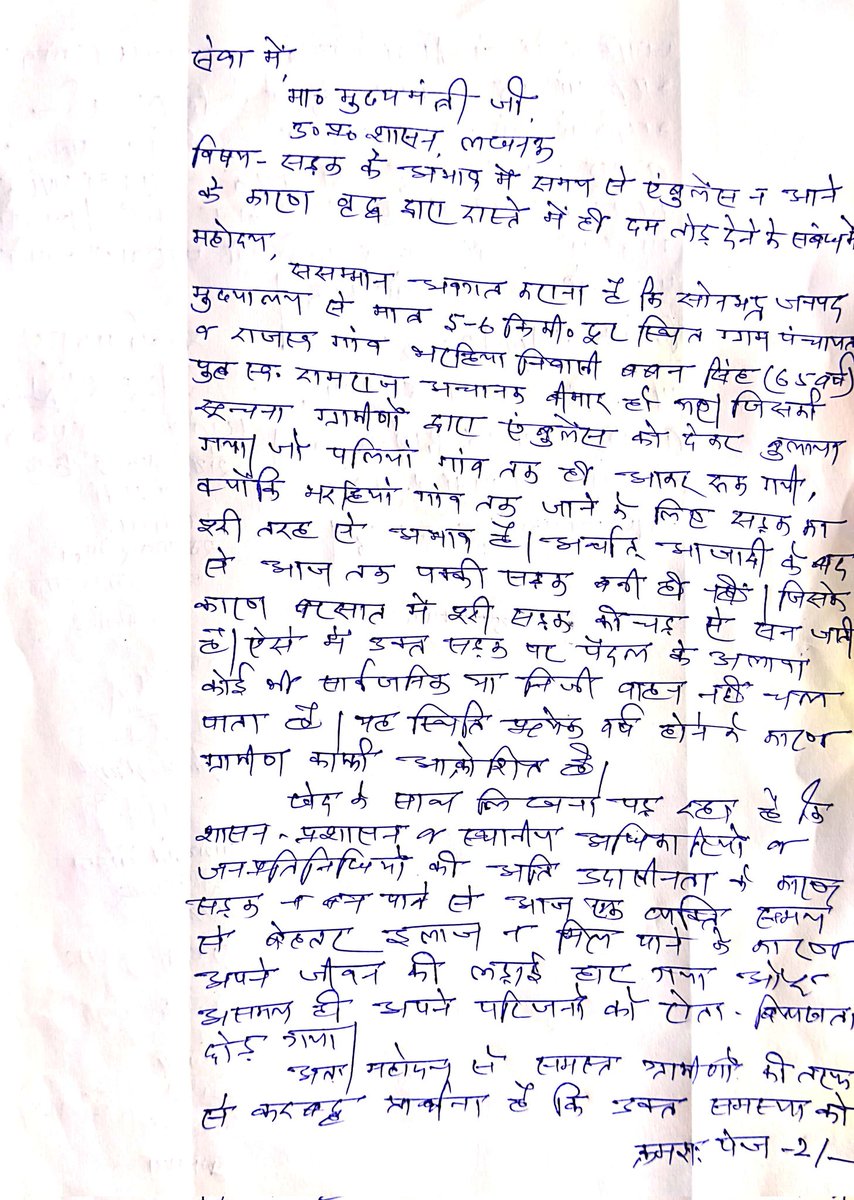 सेवा में,
मा० मुख्यमंत्री जी,
उ० प्र० शासन, लखनऊ
विषय- सड़क के अभाव में समय से एंबुलेंस न आने
के कारण वृद्ध द्वारा रास्ते में ही दम तोड़ देने के संबंध में
महोदय,
ससम्मान अवगत कराना है कि सोनभद्र जनपद
मुख्यालय से मात्र 5-6 किमी० दूर स्थित ग्राम पंचायत
व राजस्व गांव भरहिया निवासी बबन सिंह (65 वर्ष)
पुत्र स्व. रामराज अचानक बीमार हो गए। जिसकी
सूचना ग्रामीणों द्वारा एंबुलेंस को देकर बुलाया
गया। जो पलियां गांव तक ही आकर रूक गयी,
क्योंकि भरहियां गांव तक जाने के लिए सड़क का
पूरी तरह से अभाव है। अर्थात् आजादी के बाद
से आज तक पक्की सड़क बनी ही नहीं। जिसके
कारण बरसात में पूरी सड़क कीचड़ से सन जाती
है। ऐसे में उक्त सड़क पर पैदल के अलावा
कोई भी सार्वजनिक या निजी वाहन नहीं चल
पाता है। यह स्थिति प्रत्येक वर्ष होने के कारण
ग्रामीण काफी आक्रोशित है।
खेद के साथ लिखना पड़ रहा है कि
शासन-प्रशासन व स्थानीय अधिकारियों व
जनप्रतिनिधियों की अति उदासीनता के कारण
सड़क न बन पाने से आज एक व्यक्ति समय
से बेहतर इलाज न मिल पाने के कारण
अपने जीवन की लड़ाई हार गया और
असमय ही अपने परिजनों को रोता-बिलखता
छोड़ गया।
अतः महोदय से समस्त ग्रामीणों की तरफ
से करबद्ध प्रार्थना है कि उक्त समस्या को
क्रमशः पेज -2/-